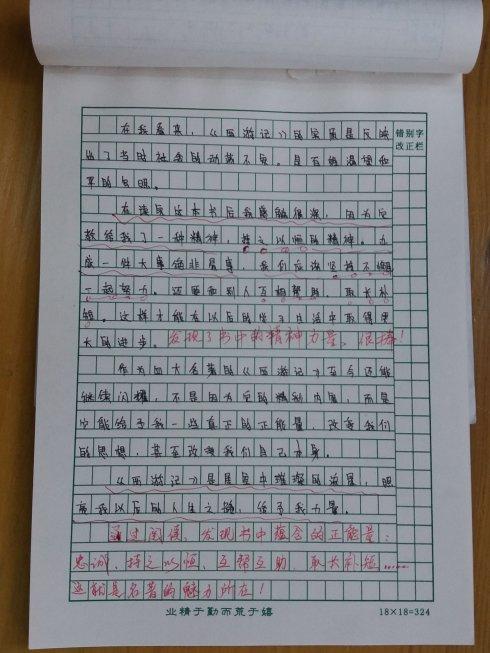 错别字
改正栏
在我看来，《西游记》的实质是反映
出了当时社会的动荡不安。是百姓渴望和
平的向明。
在读完这本书后我感触很深，因为它
教给我了一种精神，持之以恒的精神。办
成一件大事绝非易事，我们应该坚持不懈
一起努力。还要和别人互相帮助，取长补
短。这样才能在以后的学习生活中取得更
大的进步。发现了书中的精神力量，很棒！
作为四大名著的《西游记》至今还能
继续闪耀，不是因为它的精彩内容，而是
它能给予我一些真正的正能量，改变我们
的思想，甚至改变我们自己本身。
《西游记》是星空中璀璨的流星，照
亮我以后的人生之路，给予我力量。
通过阅读，发现书中蕴含的正能量：
忠诚、持之以恒、互帮互助、取长补短……
这就是名著的魅力所在！
业精于勤而荒于嬉
18×18=324